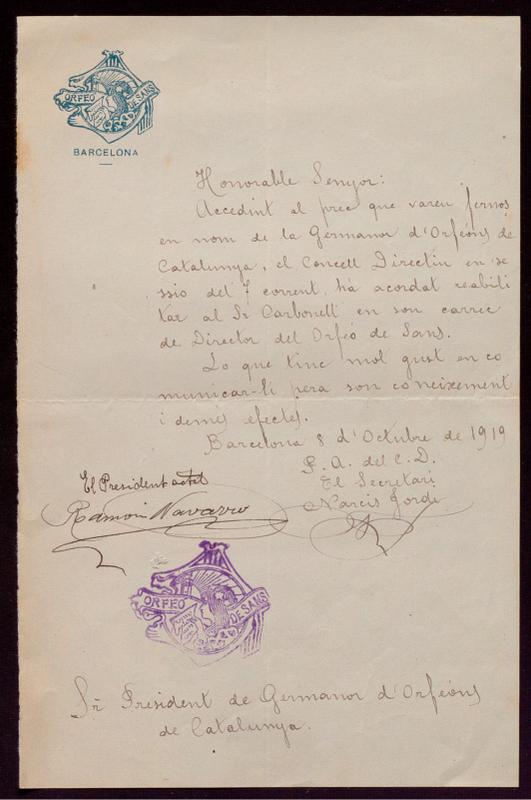 ORFEÓ DE SANS
BARCELONA
Honorable Senyor:
Accedint al prec que vareu fernos
en nom de la Germanor d'Orfeóns de
Catalunya, el Concell Directiu en se
ssio del 7 corrent, ha acordat reabili
tar al Sr Carbonell en son carrec
de Director del Orfeó de Sans.
Lo que tinc mol gust en co
municar-li pera son coneixement
i demés efectes.
Barcelona 8 d'Octubre de 1919
P. A. del C. D.
El Secretari
Narcis Jordi
El President actal
Ramón Navarro
ORFEÓ DE SANS
Sr. President de Germanor d'Orfeóns
de Catalunya.